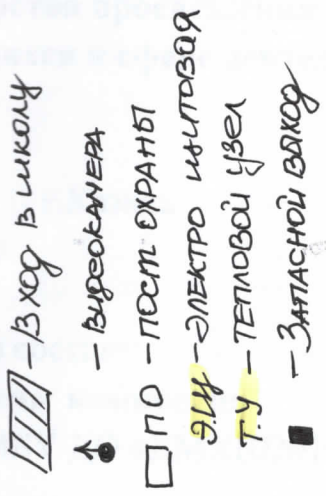 – Вход в школу
– Видеокамера
ПО – ПОСТ ОХРАНЫ
ЭЩ ЭЛЕКТРО ЩИТОВАЯ
Т.У – ТЕПЛОВОЙ УЗЕЛ
– ЗАПАСНОЙ ВЫХОД